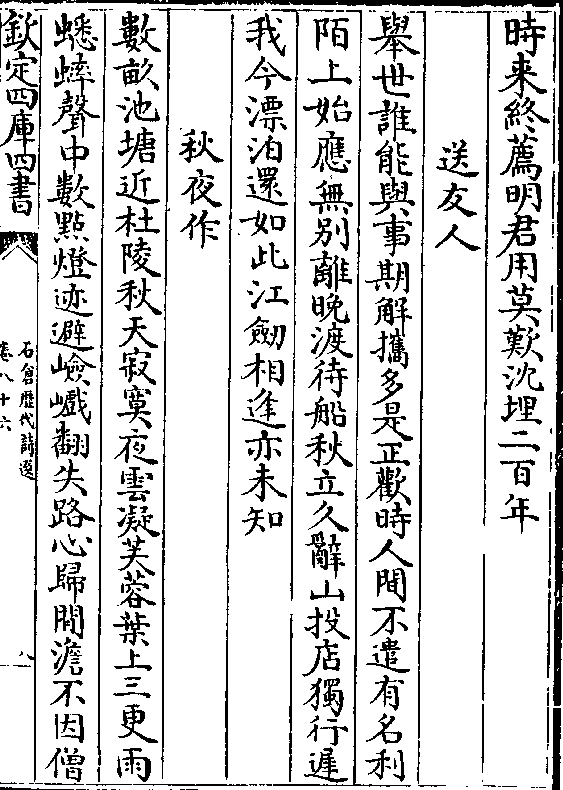 時来終薦明君用莫歎沈埋二百年
送友人
舉世誰能與事期解攜多是正歡時人間不遣有名利
陌上始應無别離晚渡待船秋立久辭山投店獨行遲
我今漂泊還如此江劒相逢亦未知
秋夜作
數畝池塘近杜陵秋天寂寞夜雲凝芙蓉葉上三更雨
蟋蟀聲中數點燈迹避嶮巇翻失路心歸閒澹不因僧
欽定四庫四書
石倉歴代詩選
卷八十六
八